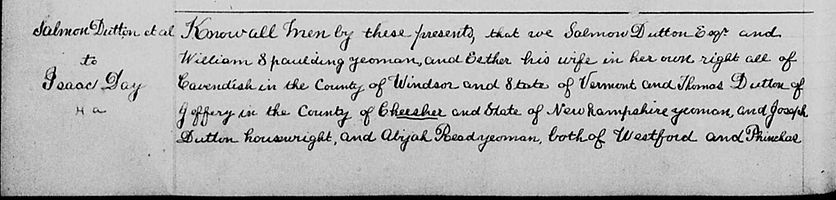 Salmon Dutton et al
to
Isaac Day
Know all Men by these presents, that we Salmon Dutton Esqr and
William Spaulding yeoman, and Esther his wife in her own right all of
Cavendish in the County of Windsor and State of Vermont and Thomas Dutton of
Jeffery in the County of Cheesher and State of New hampshire yeoman, and Joseph
Dutton housewright, and Abijah Read yeoman, both of Westford and Phinehas